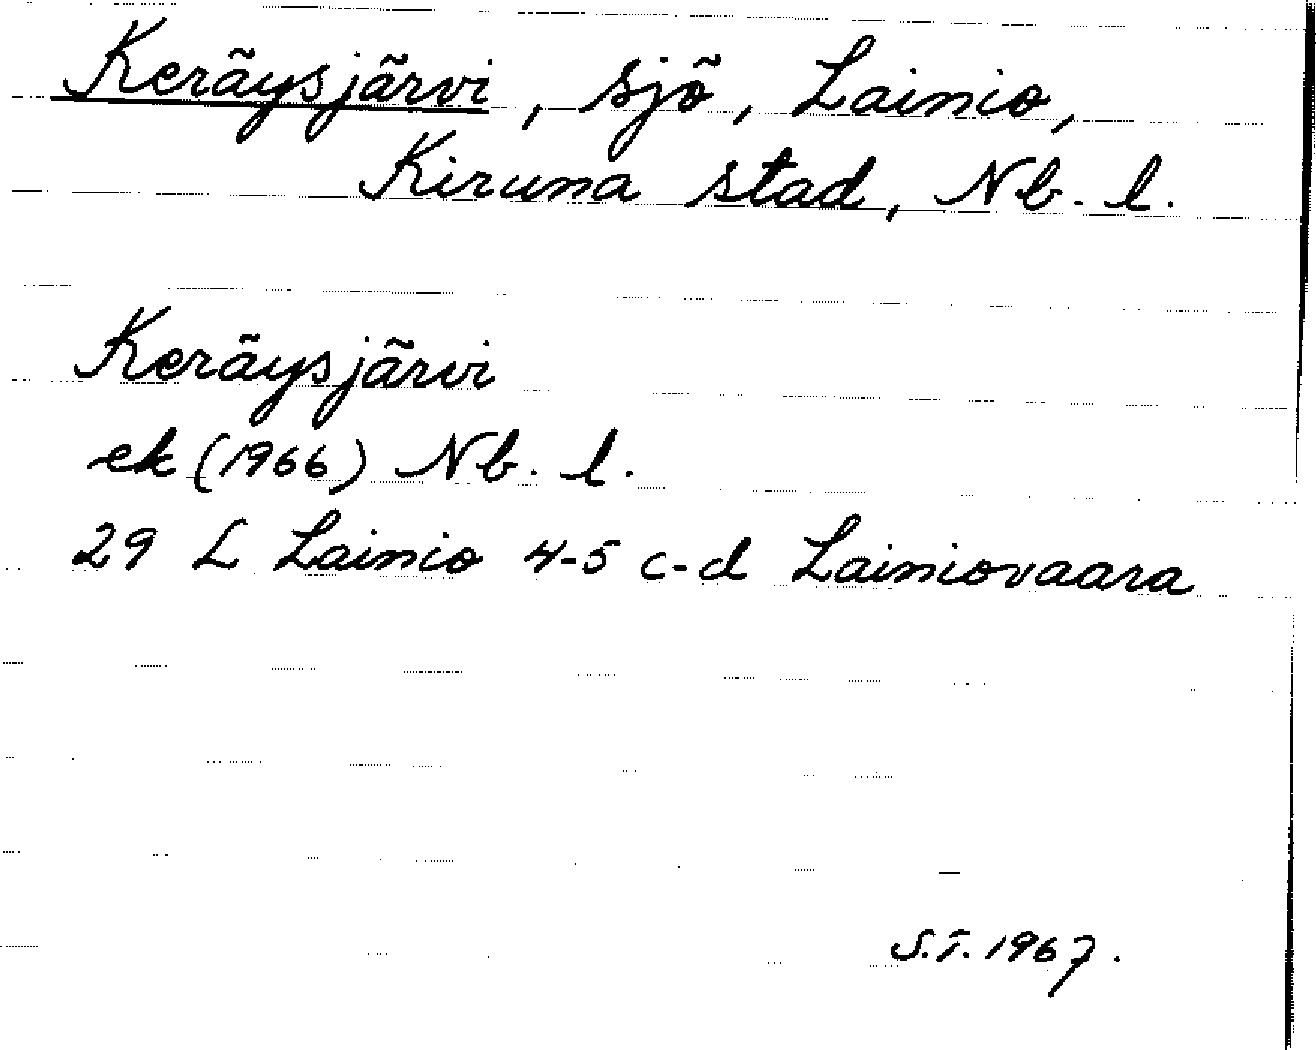 Keräysjärvi, sjö, Lainio,
Kiruna stad, Nb. l.
Keräysjärvi
ek (1966) Nb. l.
29 L Lainio 4-5 c-d Lainiovaara
S.T. 1967.